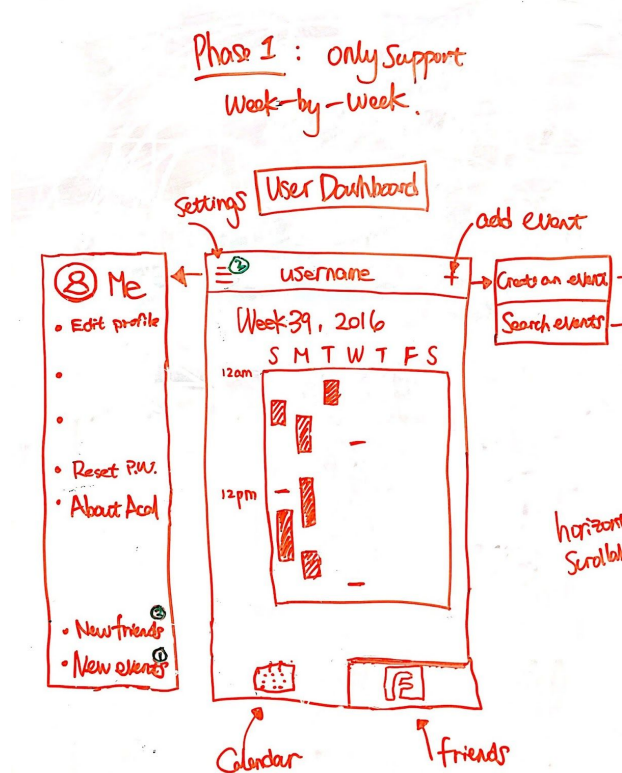 Phase 1 : only Support
Week-by-Week.
User Dashboard
Settings
add event
Me
• Edit profile
•
•
• Reset P.W.
• About Acal
• New friends 2
• New events 1
username
+
Week 39, 2016
S M T W T F S
12am
12pm
Create an event
Search events
F
Calendar
friends